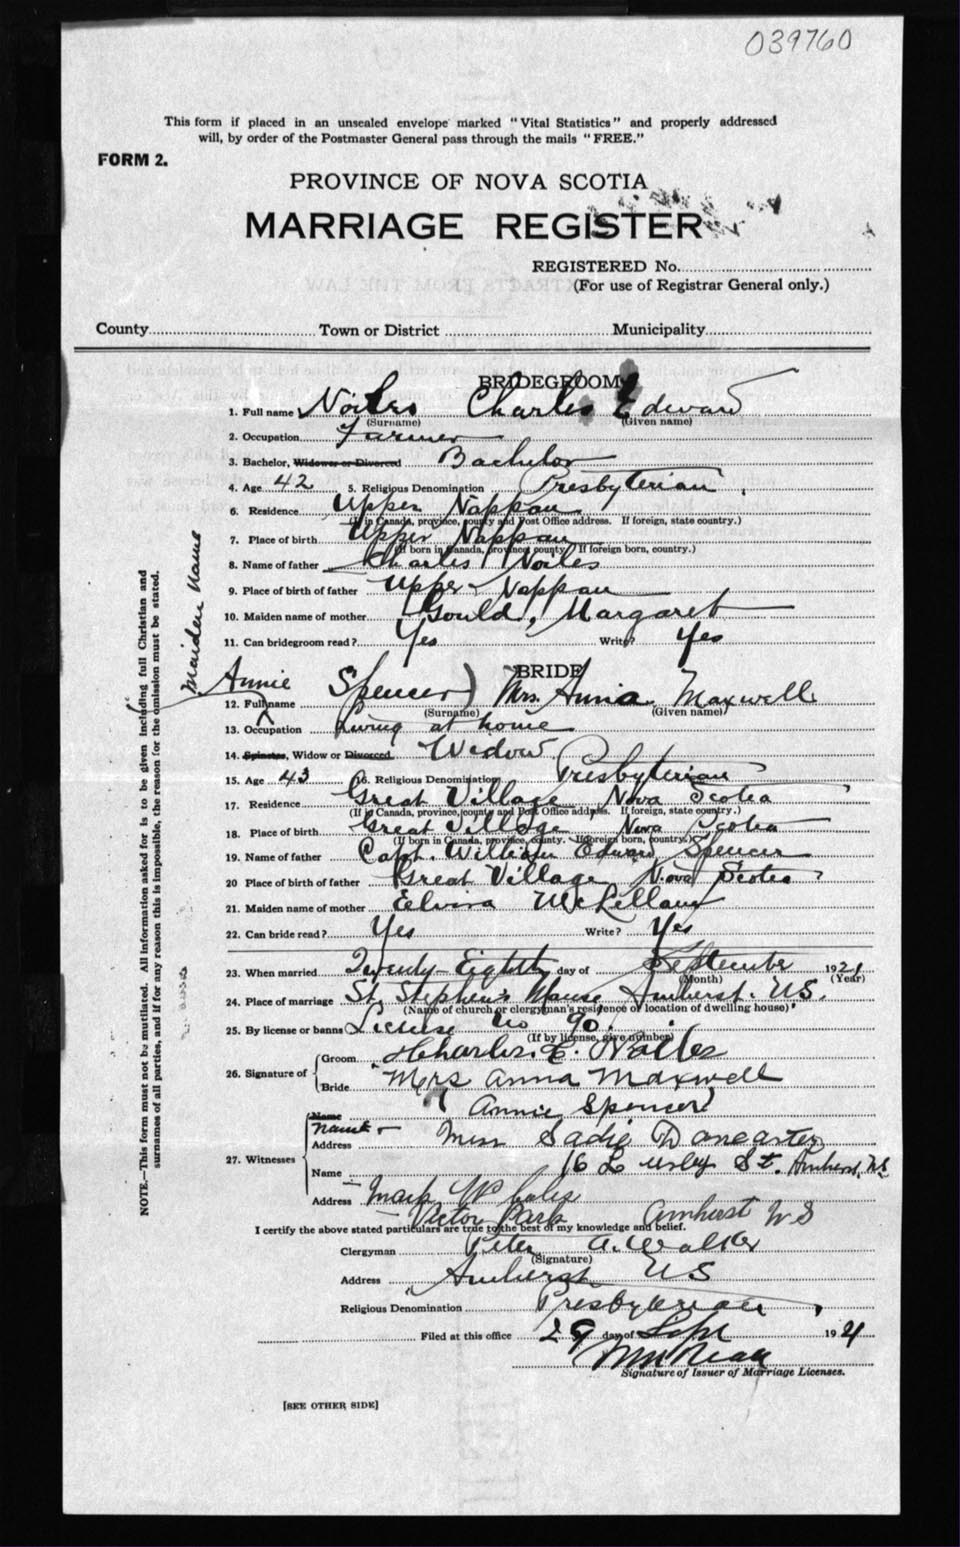 039760
This form if placed in an unsealed envelope marked "Vital Statistics" and properly addressed
will, by order of the Postmaster General pass through the mails "FREE."
FORM 2.
PROVINCE OF NOVA SCOTIA
MARRIAGE REGISTER
REGISTERED No.
(For use of Registrar General only.)
County Town or District Municipality
BRIDEGROOM
1. Full name Noiles Charles Edward
(Surname) (Given name)
2. Occupation Farmer
3. Bachelor, Widower or Divorced Bachelor
4. Age 42 5. Religious Denomination Presbyterian
6. Residence Upper Nappan
(If in Canada, province, county and Post Office address. If foreign, state country.)
7. Place of birth Upper Nappan
(If born in Canada, province, county. If foreign born, country.)
8. Name of father Charles Noiles
9. Place of birth of father Upper Nappan
10. Maiden name of mother Gould, Margaret
11. Can bridegroom read? Yes Write? Yes
Maiden Name
BRIDE
Annie Spencer) Mrs. Anna Maxwell
12. Full name (Surname) (Given name)
13. Occupation Living at home
14. Spinster, Widow or Divorced. Widow
15. Age 43 16. Religious Denomination Presbyterian
17. Residence Great Village Nova Scotia
(If in Canada, province, county and Post Office address. If foreign, state country.)
18. Place of birth Great Village, Nova Scotia
(If born in Canada, province, county. If foreign born, country.)
19. Name of father Capt. William Edward Spencer
20 Place of birth of father Great Village, Nova Scotia
21. Maiden name of mother Elvira McLellan
22. Can bride read? Yes Write? Yes
23. When married Twenty-Eighth day of September 1921
(Month) (Year)
24. Place of marriage St. Stephen's Manse Amherst. N.S.
(Name of church or clergyman's residence or location of dwelling house)
25. By license or banns License No 90.
(If by license, give number)
26. Signature of Groom Charles. E. Noiles
Bride Mrs Anna Maxwell
Annie Spencer
Name
Name
Address Miss Sadie
27. Witnesses 16 St. Amherst, N.S.
Name
Address Mark
Victor Park Amherst N S
I certify the above stated particulars are true to the best of my knowledge and belief.
Clergyman Peter A. Walker
(Signature)
Address Amherst N S
Religious Denomination Presbyterian
Filed at this office 29 day of Sept 1921
Signature of Issuer of Marriage Licenses.
[SEE OTHER SIDE]
NOTE.—This form must not be mutilated. All information asked for is to be given including full Christian and
surnames of all parties, and if for any reason this is impossible, the reason for the omission must be stated.